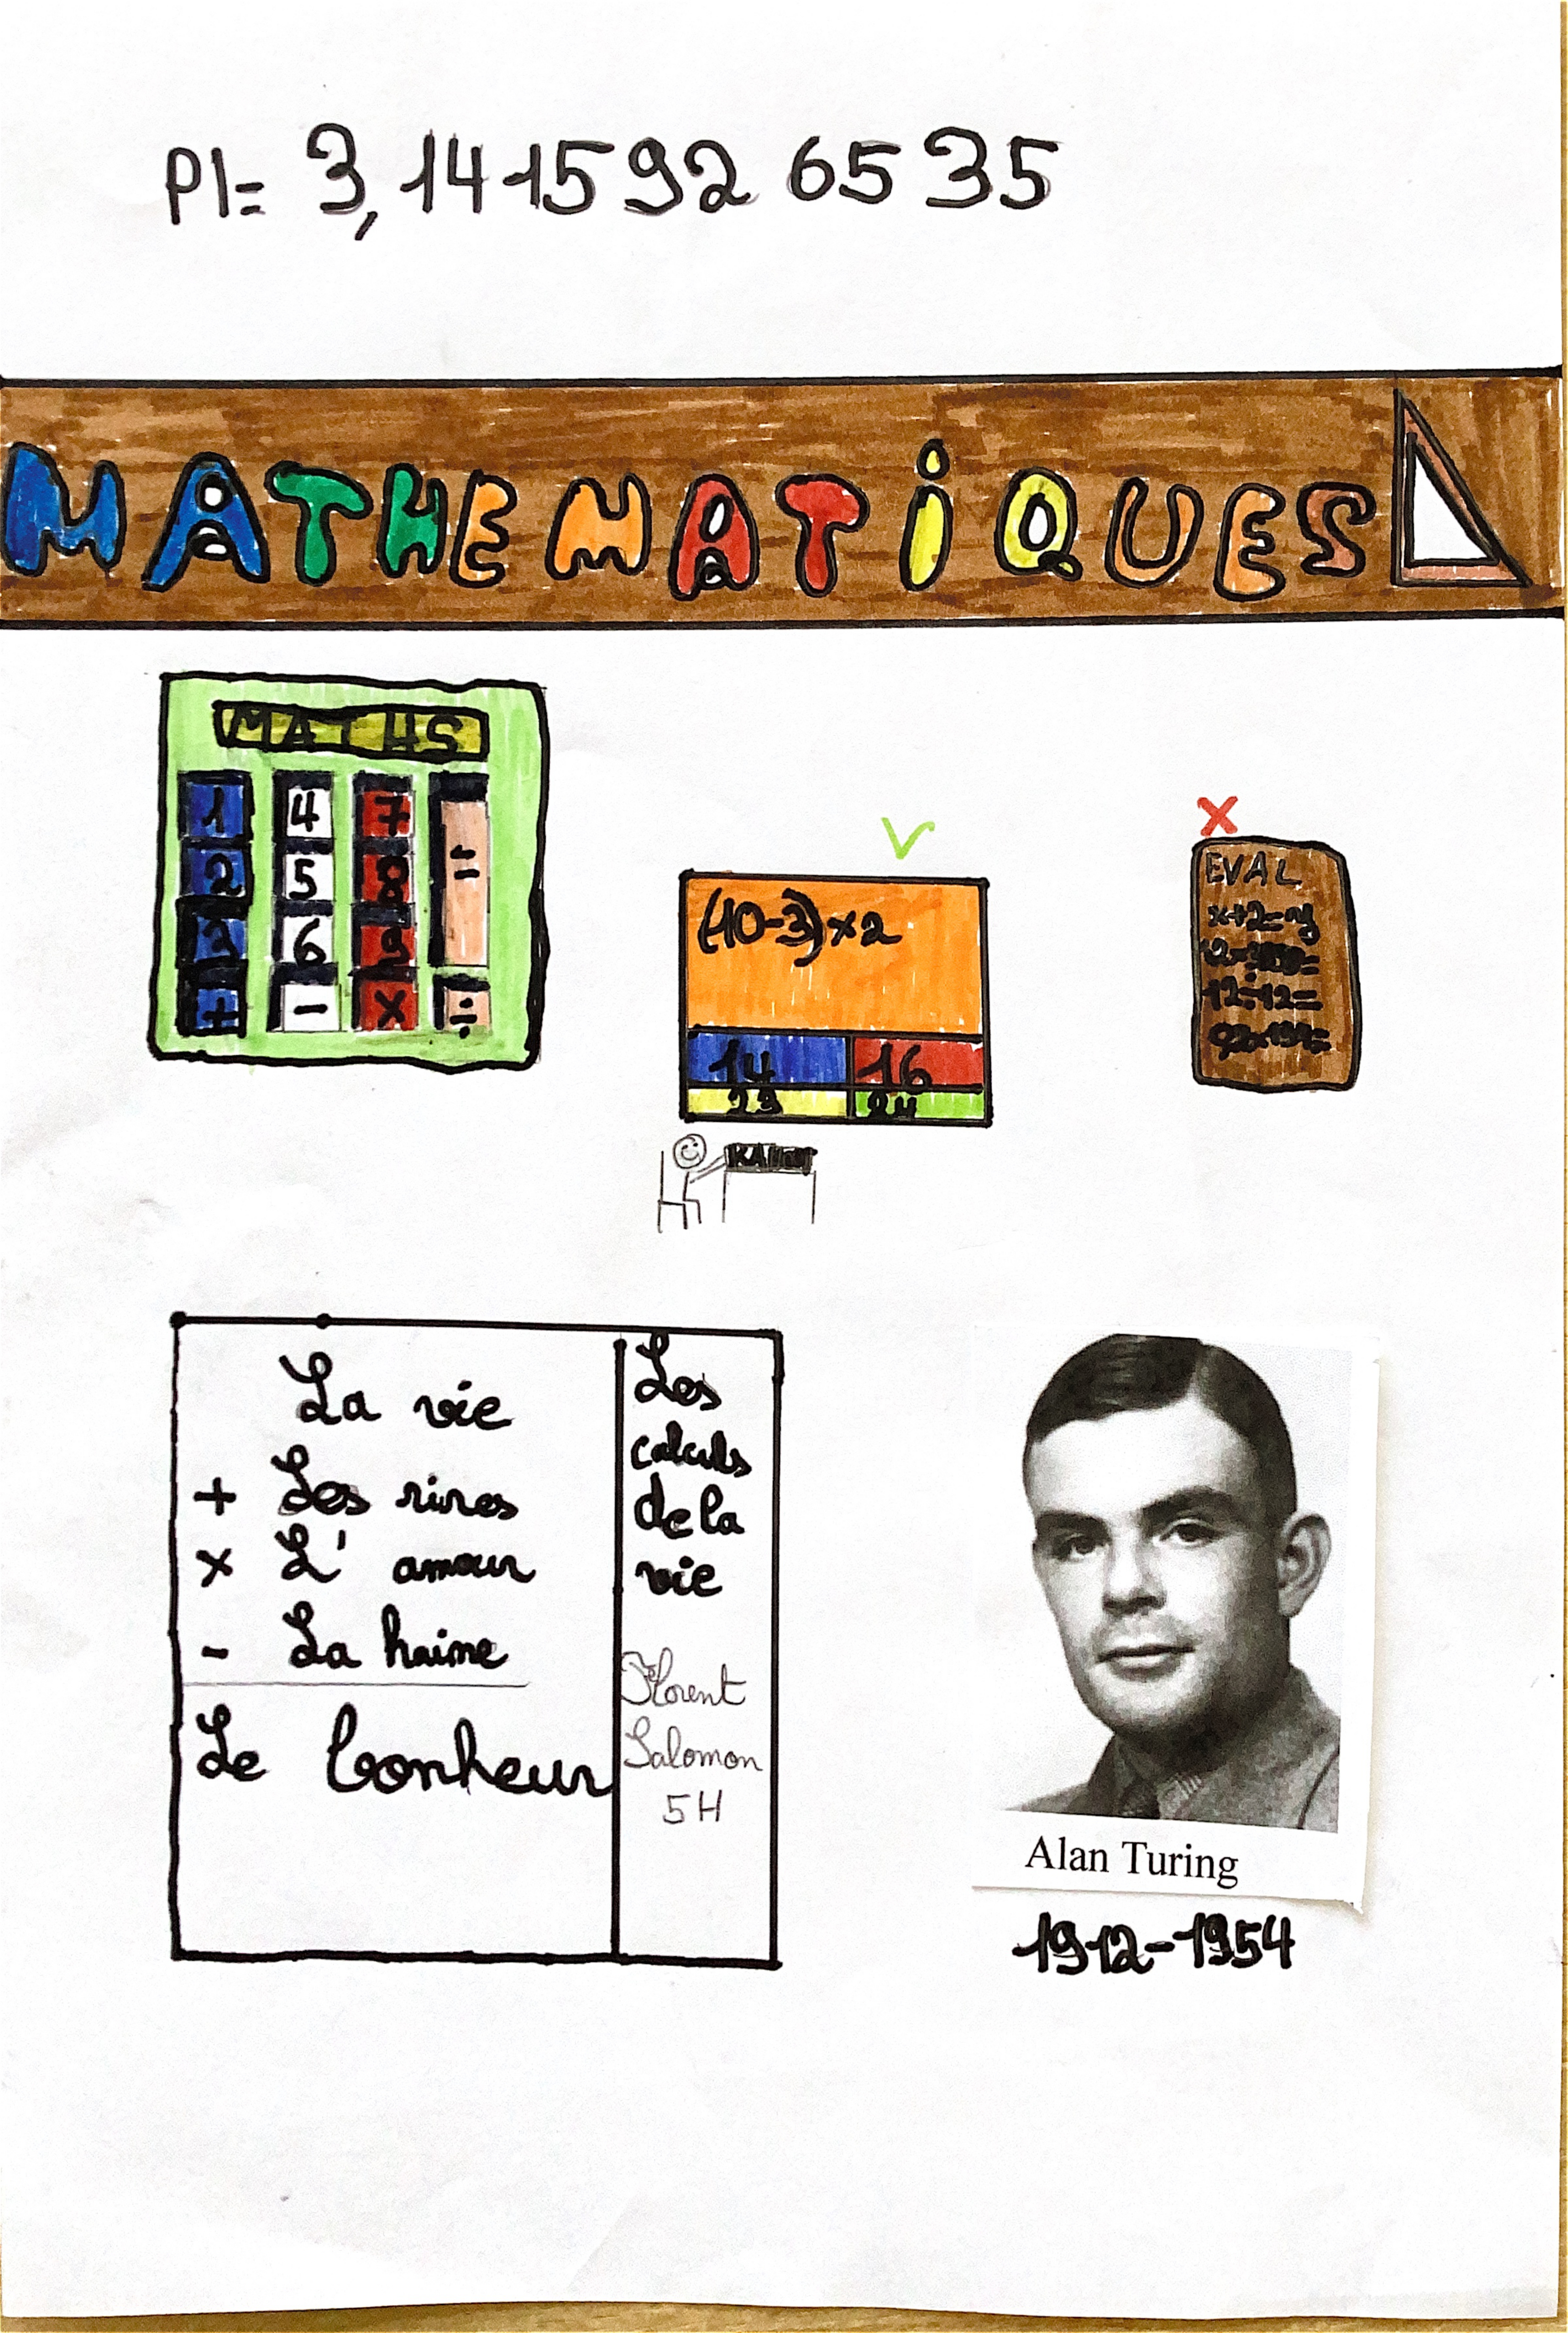 PI= 3,141592 6535
MATHEMATiQUES
MATHS
1 4 7 =
2 5 8
3 6 9
+ - × ÷
V
(10-3)×2
14 16
23 24
KAHOOT
X
EVAL
x+2=y
12÷12=
92×194=
La vie
+ Les rires
× L' amour
- La haine
Le bonheur
Les
calculs
de la
vie
Florent
Salomon
5H
Alan Turing
1912-1954